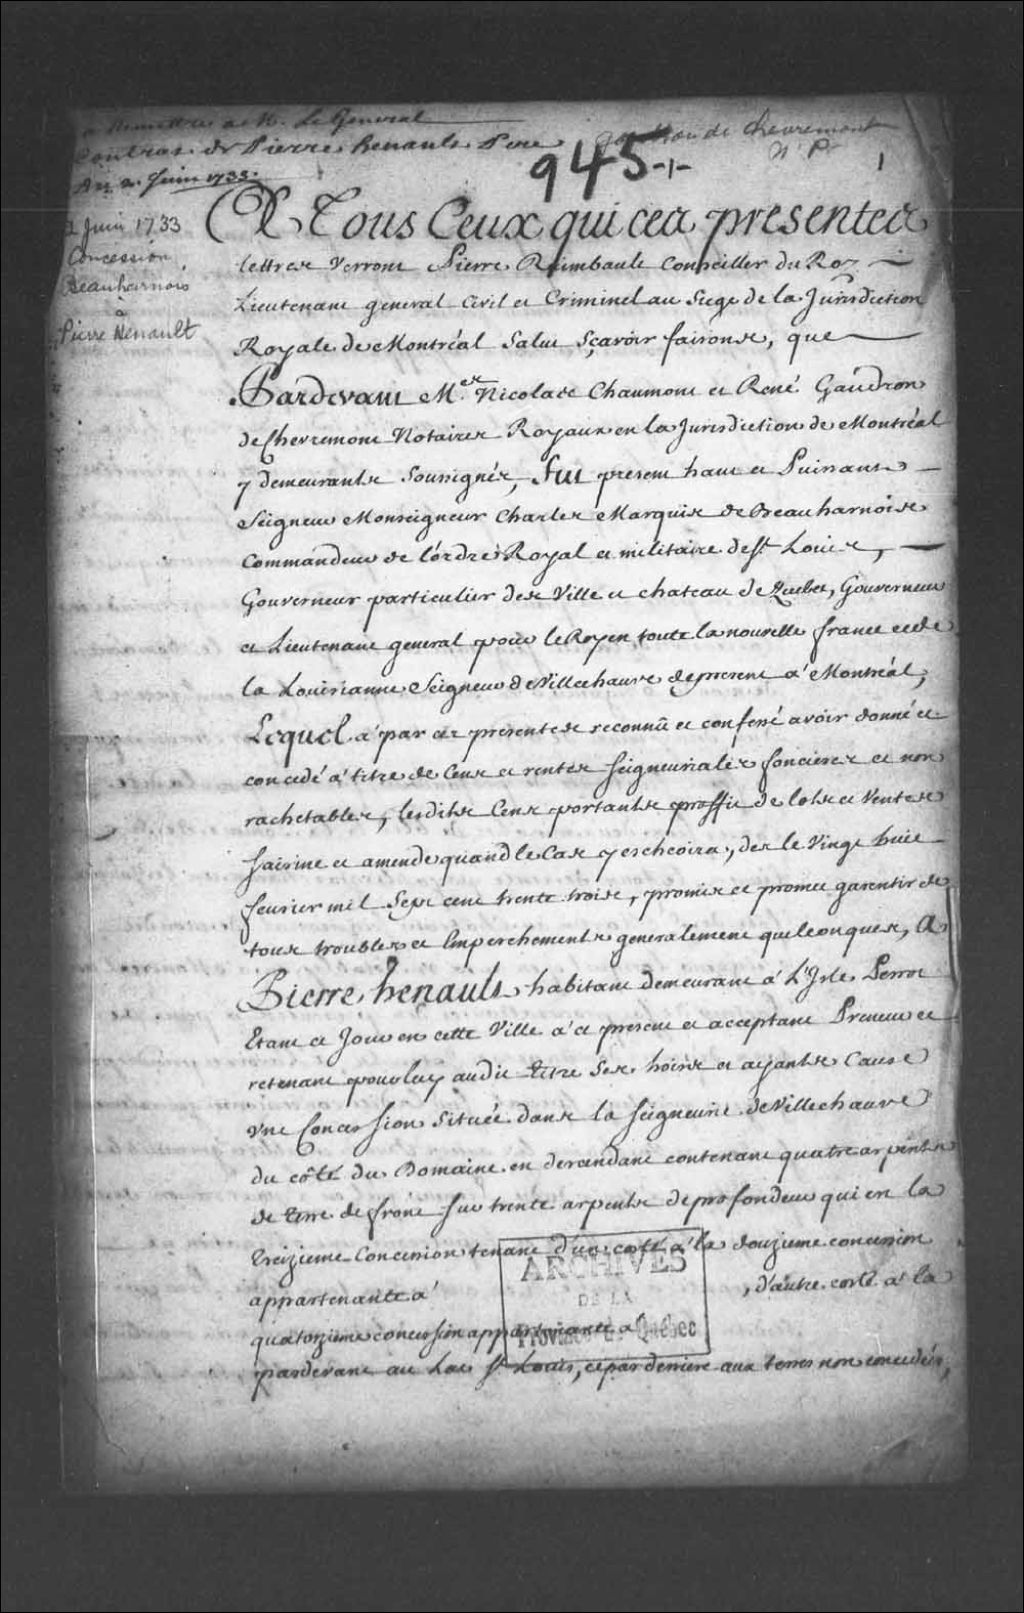 a Remettre a M. Le General
Contrat de Pierre henault Pere
Du 2. Juin 1733.
Gaudron de Chevremont
N. P.
945-1-
1
2 Juin 1733
Concession
Beauharnois
à
Pierre Henault
A Tous Ceux qui ces presentes
lettres Verront Pierre Raimbault Conseiller du Roy
Lieutenant general Civil et Criminel au Siege de la Jurisdiction
Royale de Montréal Salut Sçavoir faisons, que
Pardevant Mes. Nicolas Chaumont et René Gaudron
de Chevremont Notaires Royaux en la Jurisdiction de Montréal
y demeurants Soussignés, fut present haut et Puissant
Seigneur Monseigneur Charles Marquis de Beauharnois
Commandeur de l'ordre Royal et militaire de St. Louis,
Gouverneur particulier des Ville et chateau de Quebec, Gouverneur
et Lieutenant general pour le Roy en toute la nouvelle france et de
la Louisianne Seigneur de Villechauve de present a Montréal,
Lequel a par ces presentes reconnû et confessé avoir donné et
concedé a titre de Cens et rentes Seigneuriales foncieres et non
rachetables, lesdits Cens portants proffit de lots et Ventes
Saisine et amende quand le Cas y escheoira, des le Vingt huit
fevrier mil Sept cent trente trois, promis et promet garentir de
tous troubles et Empeschements generalement quelconques, A
Pierre henault habitant demeurant a L'Isle Perrot
Etant ce Jour en cette Ville a ce present et acceptant Preneur et
retenant pour luy audit titre Ses hoirs et ayants Cause
Une Concession Située dans la Seigneurie de Villechauve
du côté du Domaine en descendant contenant quatre arpents
de terre de front sur trente arpents de profondeur qui est la
treizieme Concession tenant d'un costé a la douzieme concession
appartenante a , d'autre costé a la
quatorzieme concession appartenante a
pardevant au Lac St. Louis, et par derriere aux terres non concedées,
ARCHIVES
DE LA
Province de Québec